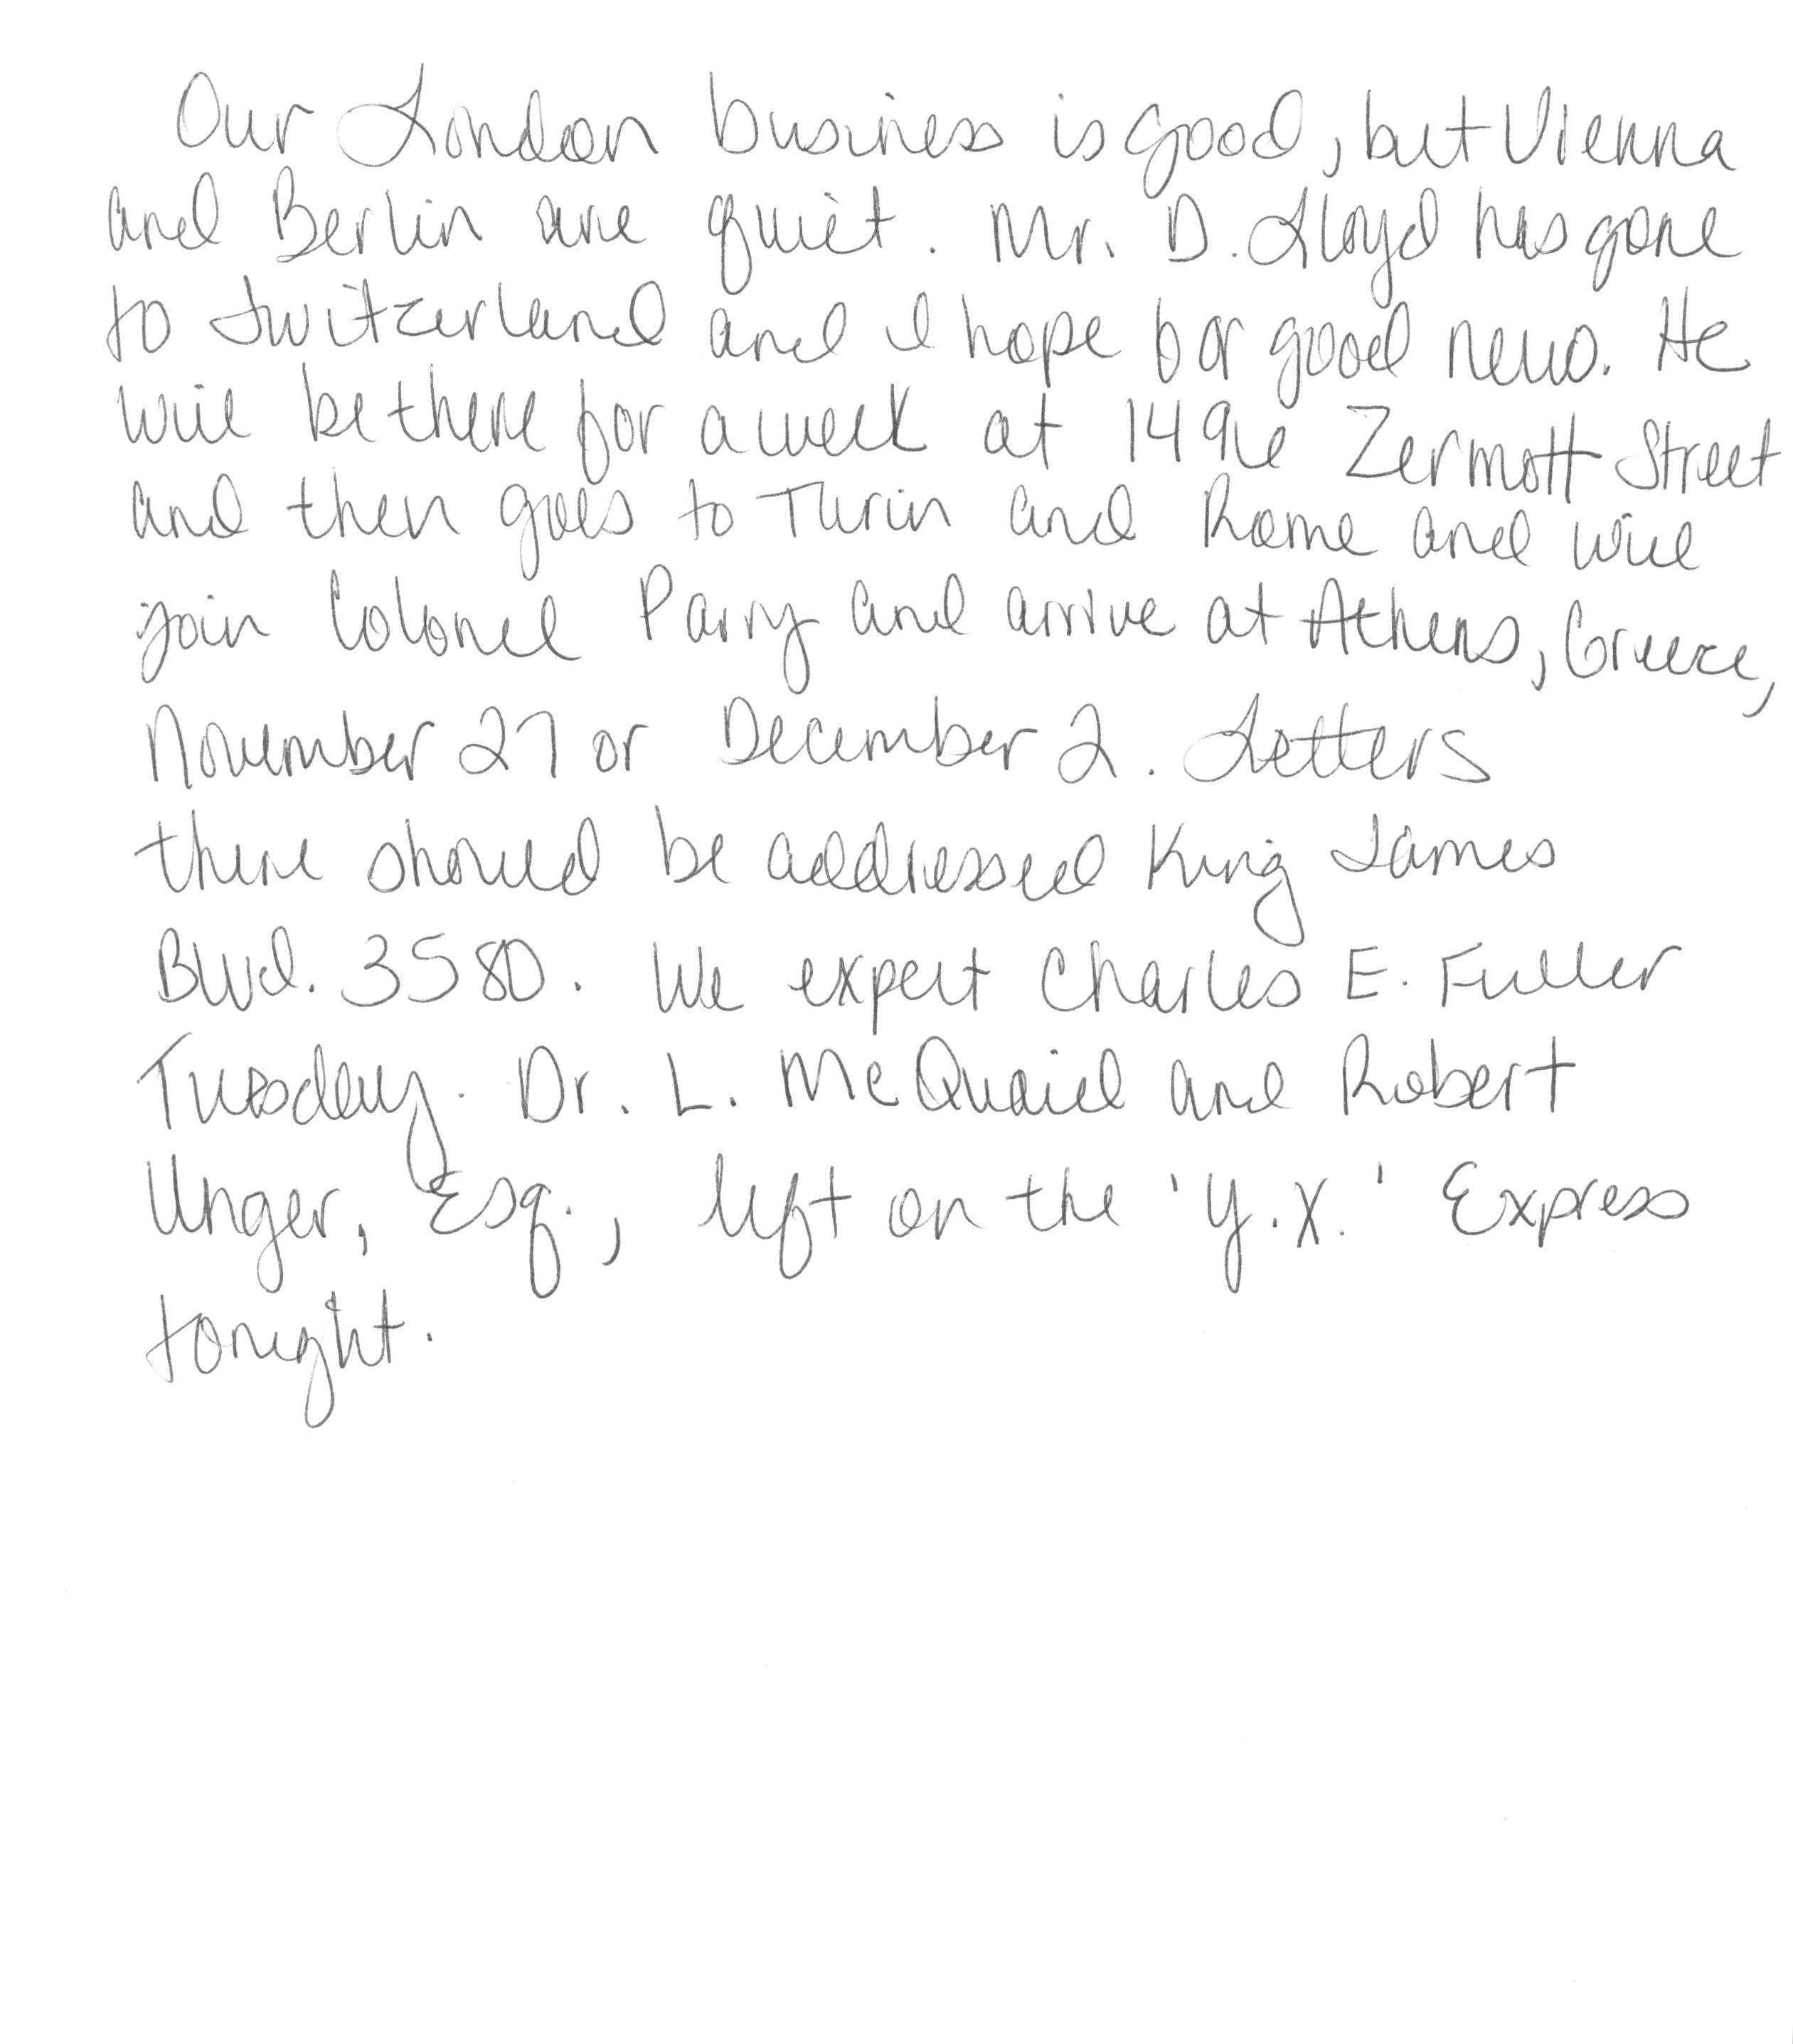 Our London business is good, but Vienna
and Berlin are quiet. Mr. D. Lloyd has gone
to Switzerland and I hope for good news. He
will be there for a week at 1496 Zermott Street
and then goes to Turin and Rome and will
join Colonel Parry and arrive at Athens, Greece,
November 27 or December 2. Letters
there should be addressed King James
Blvd. 3580. We expect Charles E. Fuller
Tuesday. Dr. L. McQuaid and Robert
Unger, Esq., left on the 'Y.X.' Express
tonight.